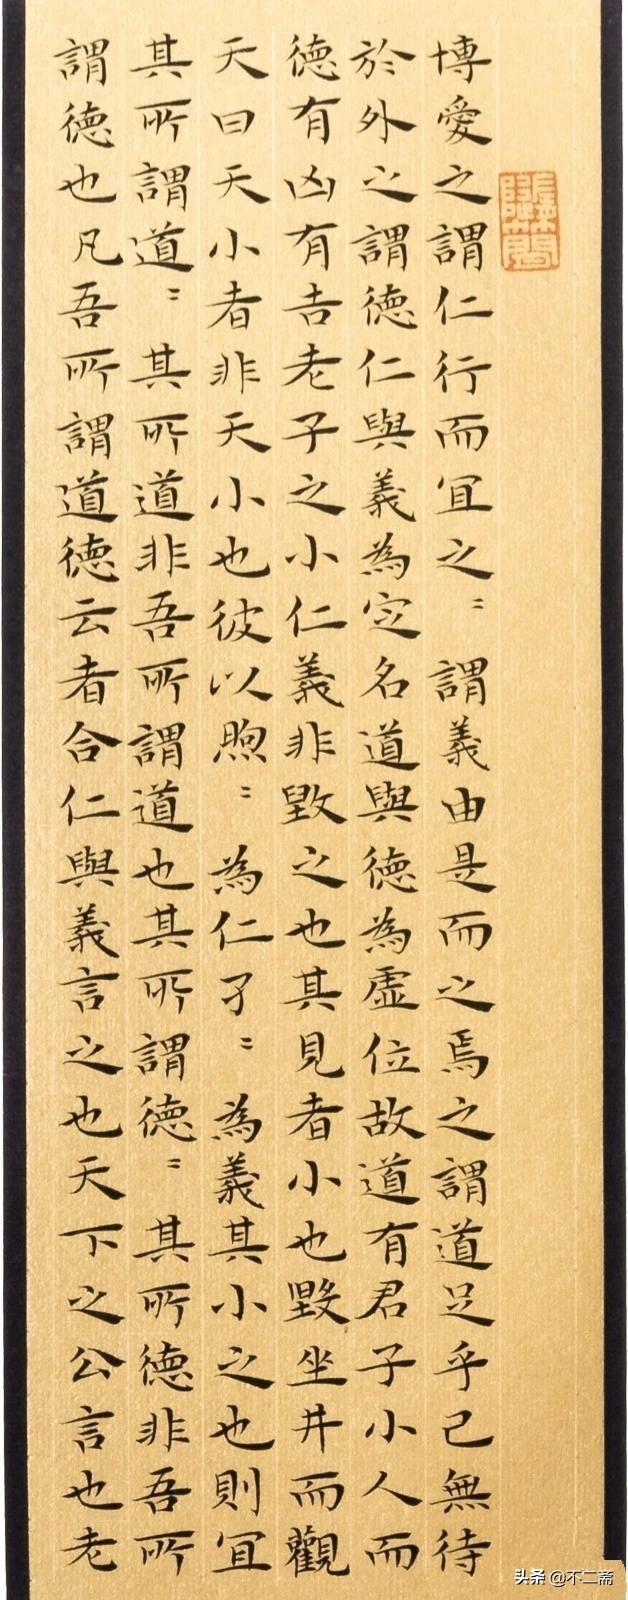 博愛之謂仁行而宜之〻謂義由是而之焉之謂道足乎己無待
於外之謂德仁與義為定名道與德為虛位故道有君子小人而
德有凶有吉老子之小仁義非毀之也其見者小也毀坐井而觀
天曰天小者非天小也彼以煦〻為仁孑〻為義其小之也則宜
其所謂道〻其所道非吾所謂道也其所謂德〻其所德非吾所
謂德也凡吾所謂道德云者合仁與義言之也天下之公言也老
头条 @不二斋